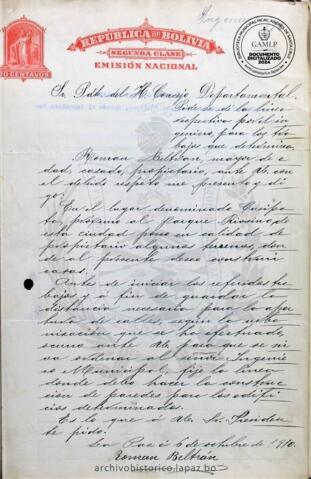 Ingenier
REPUBLICA DE BOLIVIA
SEGUNDA CLASE
EMISIÓN NACIONAL
CENTAVOS
GAMLP
DOCUMENTO
DIGITALIZADO
2024
Sr. Pdte. del H. Concejo Departamental.
Pide se dé la línea
respectiva por el in-
geniero para los tra-
bajos que determina.
Roman Beltrán, mayor de e-
dad, casado, propietario, ante Ud. con
el debido respeto me presento y di-
go:
En el lugar denominado
próximo al Parque Riosinho de
esta ciudad poseo en calidad de
propietario algunos terrenos, don-
de al presente deseo construir
casas.
Antes de iniciar los referidos tra-
bajos y á fin de guardar la
distancia necesaria para la aper-
tura de calles según la urba-
nización que se ha efectuado,
ocurro ante Ud. para que se sir-
va ordenar al señor Ingenie-
ro Municipal, fije la línea
donde debo hacer la construc-
ción de paredes para los edifi-
cios determinados.
Es lo que á Ud. Sr. Presiden-
te pido.
La Paz á 6 de octubre de 1910.
Roman Beltrán
archivohistorico.lapaz.bo